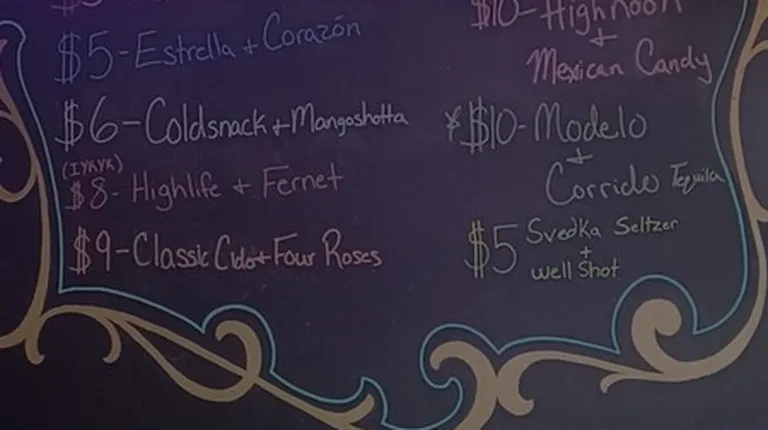 $5-Estrella + Corazón
$6-Coldsnack + Mangoshotta
(IYKYK)
$8- Highlife + Fernet
$9-Classic Cida + Four Roses
$10- High noon
+
Mexican Candy
*$10-Modelo
+
Corrido Tequila
$5 Svedka Seltzer
+
well Shot